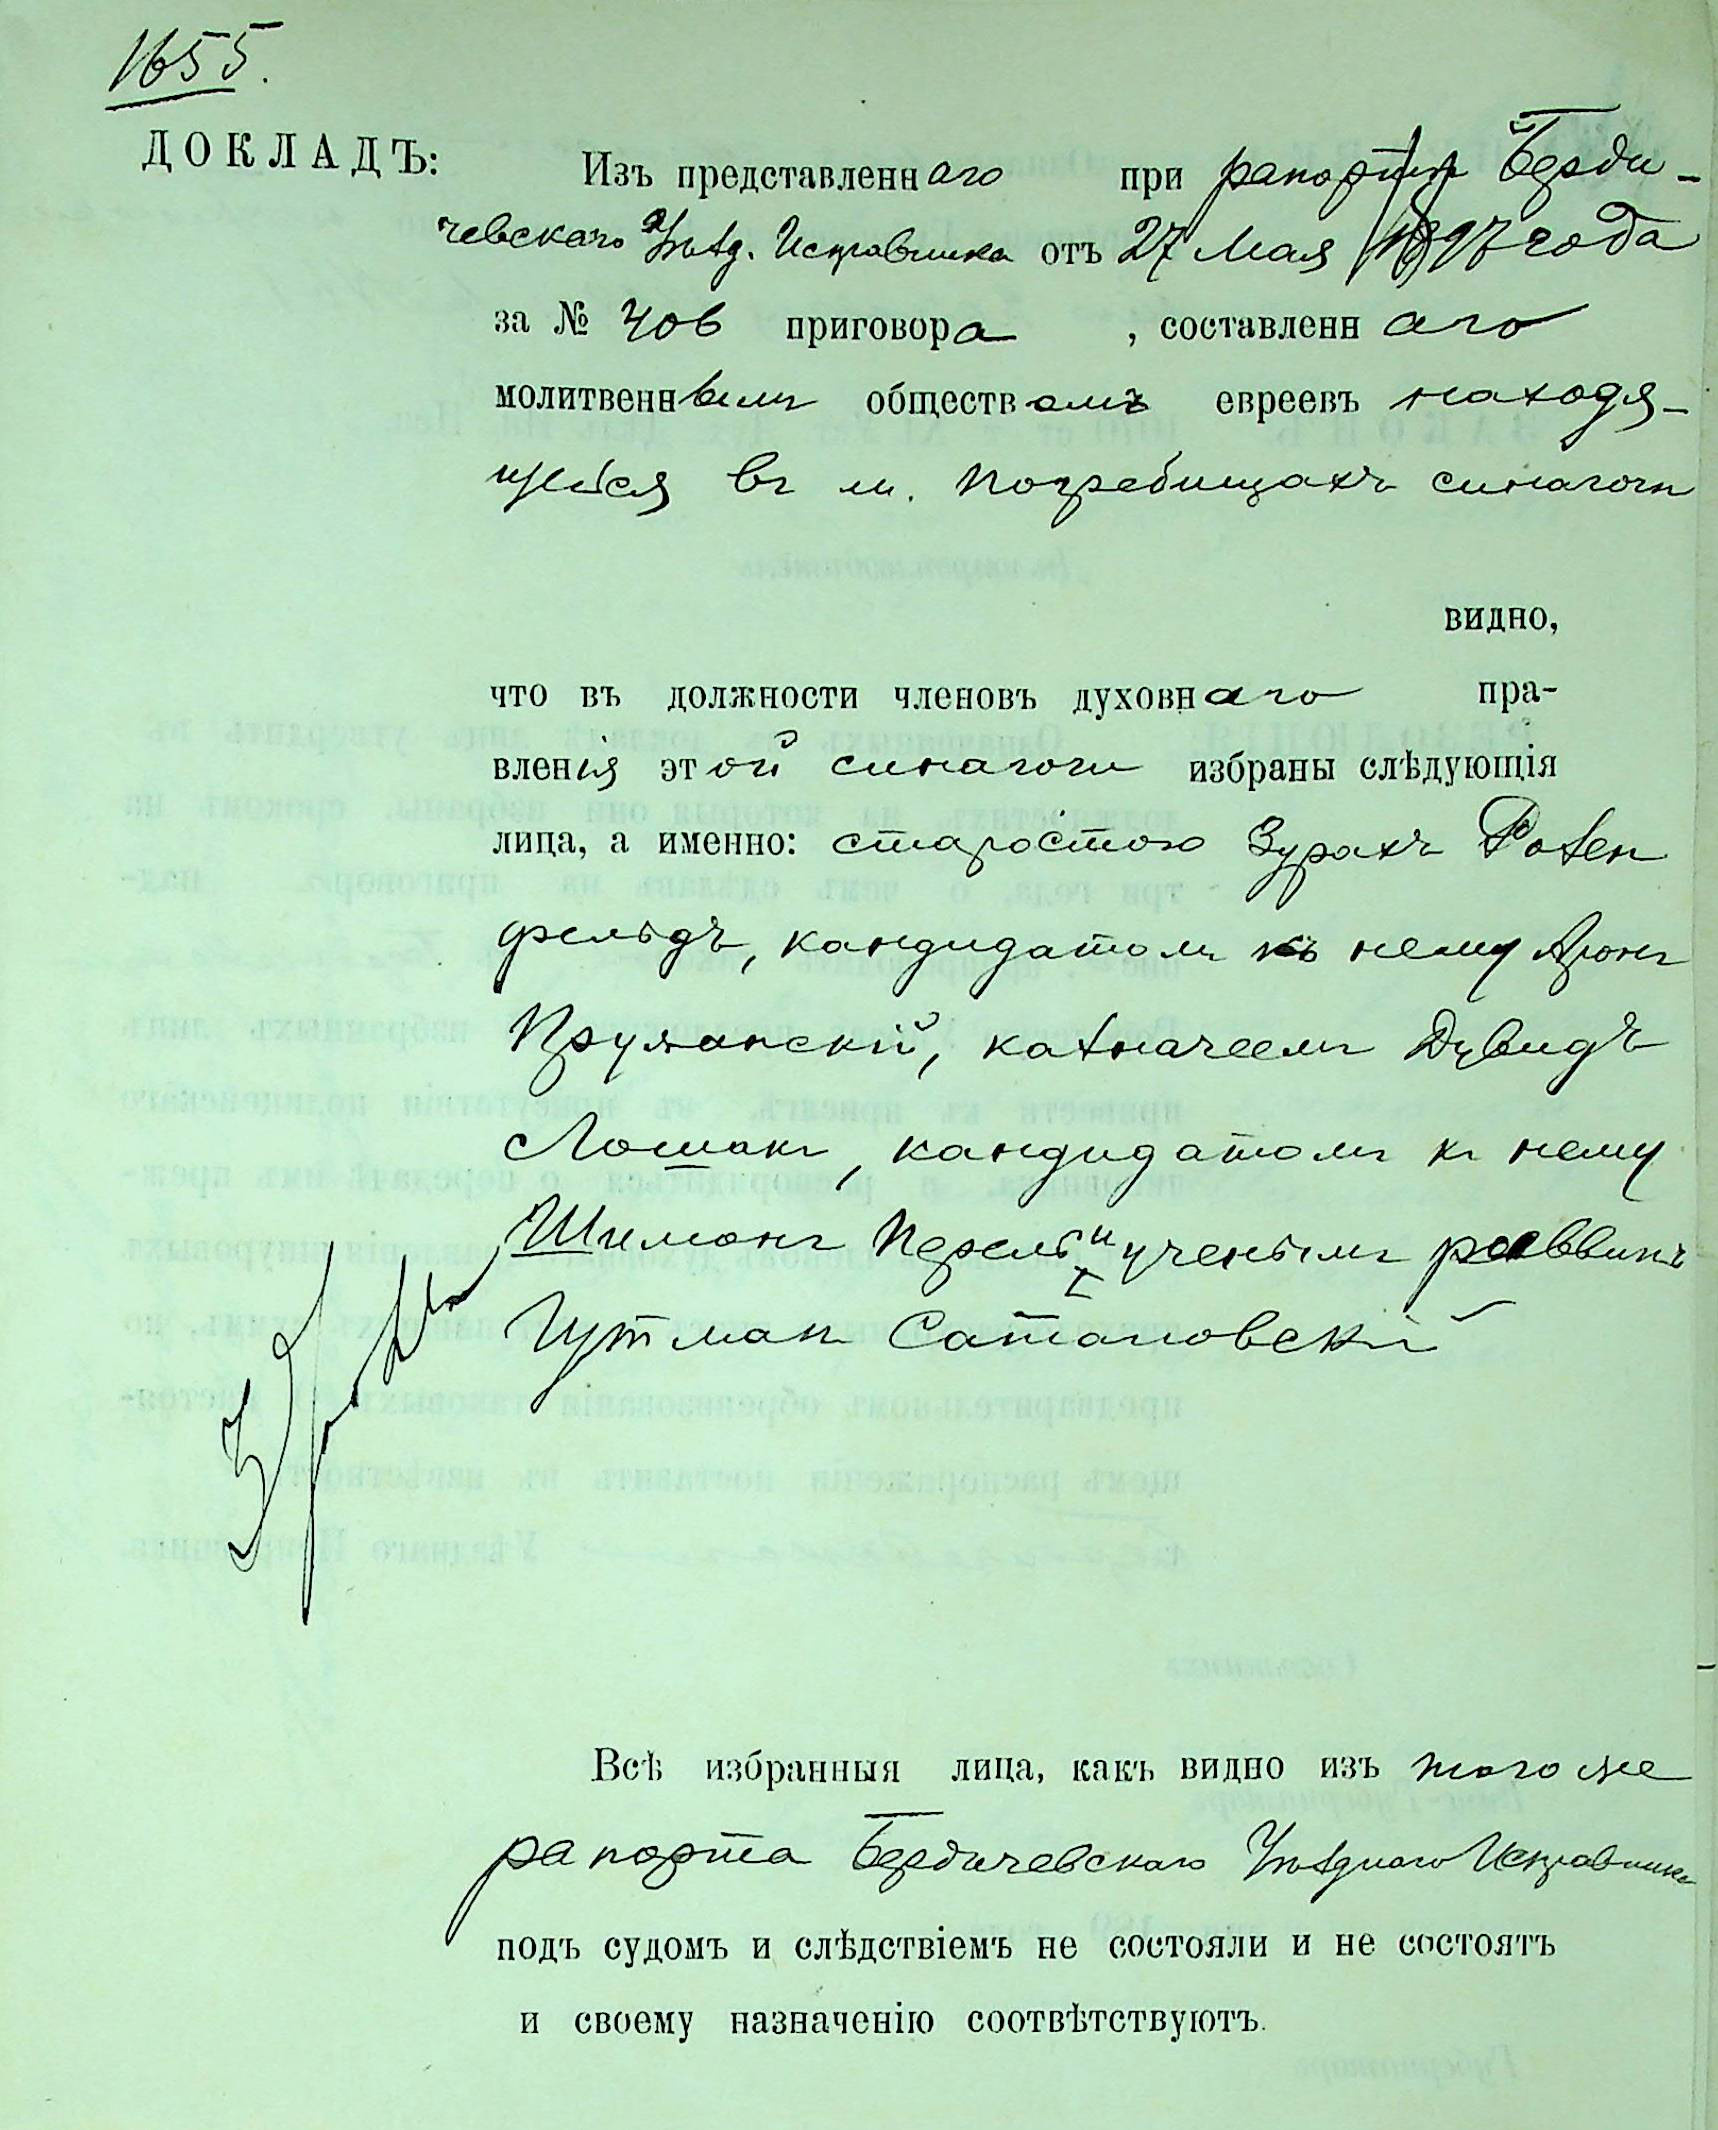 1655.
ДОКЛАДЪ:
Изъ представленнаго при рапортѣ Берди-
чевскаго Уѣзд. Исправника отъ 27 Мая 1897 года
за № 406 приговора, составленнаго
молитвеннымъ обществомъ евреевъ находя-
щейся въ м. Погребищахъ синагоги
видно,
что въ должности членовъ духовнаго пра-
вленія этой синагоги избраны слѣдующія
лица, а именно: старостою Зурахъ Розен
фельдъ, кандидатомъ къ нему Аронъ
Пружанскій, казначеемъ Дувидъ
Лошакъ, кандидатомъ къ нему
Шимонъ Перель и ученымъ раввинъ
Гутман Сатановскій
Всѣ избранныя лица, какъ видно изъ того же
рапорта Бердичевскаго Уѣзднаго Исправника
подъ судомъ и слѣдствіемъ не состояли и не состоятъ
и своему назначенію соотвѣтствуютъ.